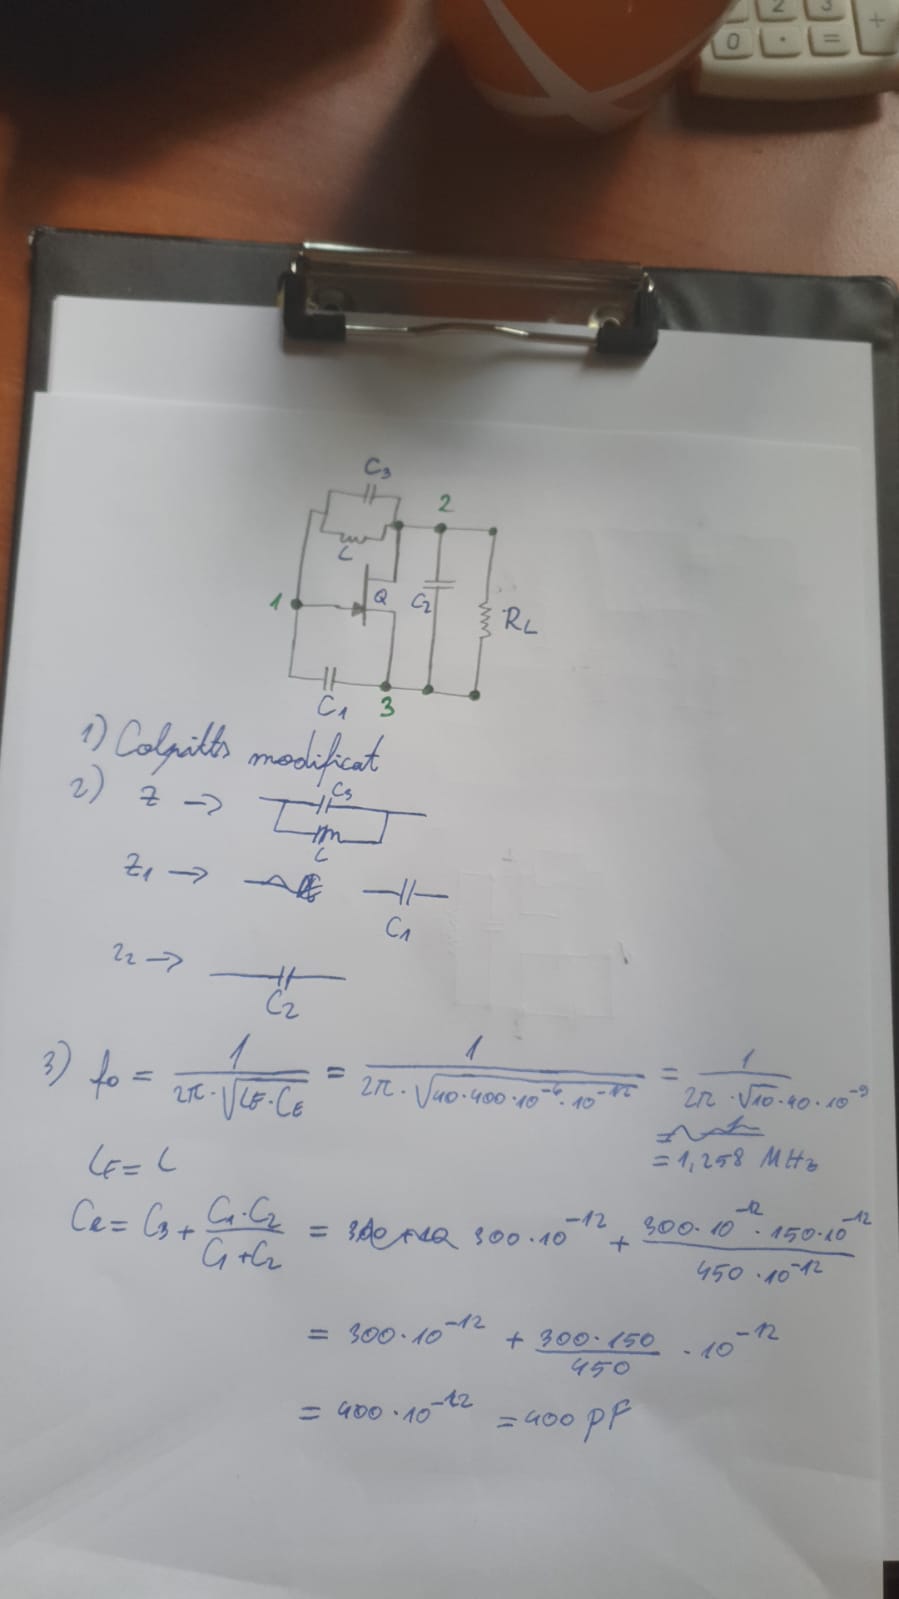 2 3
0 · = +
C3
2
L
1
Q C2 RL
C1 3
1) Colpitts modificat
2) Z → C3
L
Z1 → C1
Z2 → C2
3) f0 = 1 / (2π · √(LE · CE)) = 1 / (2π · √(40 · 400 · 10^-6 · 10^-12)) = 1 / (2π · √10 · 40 · 10^-9)
= 1,258 MHz
LE = L
Ce = C3 + (C1 · C2) / (C1 + C2) = 300 · 10^-12 + (300 · 10^-12 · 150 · 10^-12) / (450 · 10^-12)
= 300 · 10^-12 + (300 · 150) / 450 · 10^-12
= 400 · 10^-12 = 400 pF